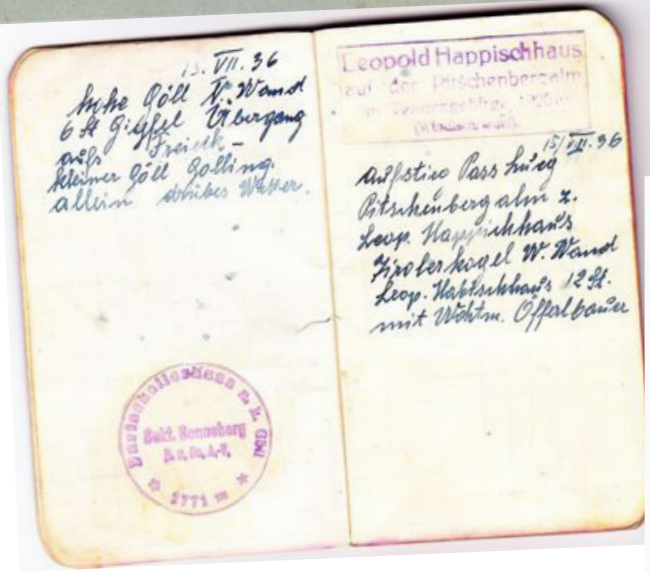 13. VII. 36
hohe Göll N. Wand
6 St Gipfel Übergang
aufs Freieck -
kleiner Göll Golling.
allein trübes Wetter.
Purtschellerhaus a. h. Göll
Sekt. Sonneberg
D. u. Oe. A.-V.
1771 m
Leopold Happischhaus
auf der Pitschenbergalm
im Tennengebirge 1920 m
15/VII. 36
Aufstieg Pass Lueg
Pitschenbergalm z.
Leop. Happischhaus
Tirolerkogel W. Wand
Leop. Habischhaus 12 St.
mit Wchtm. Öfferlbauer